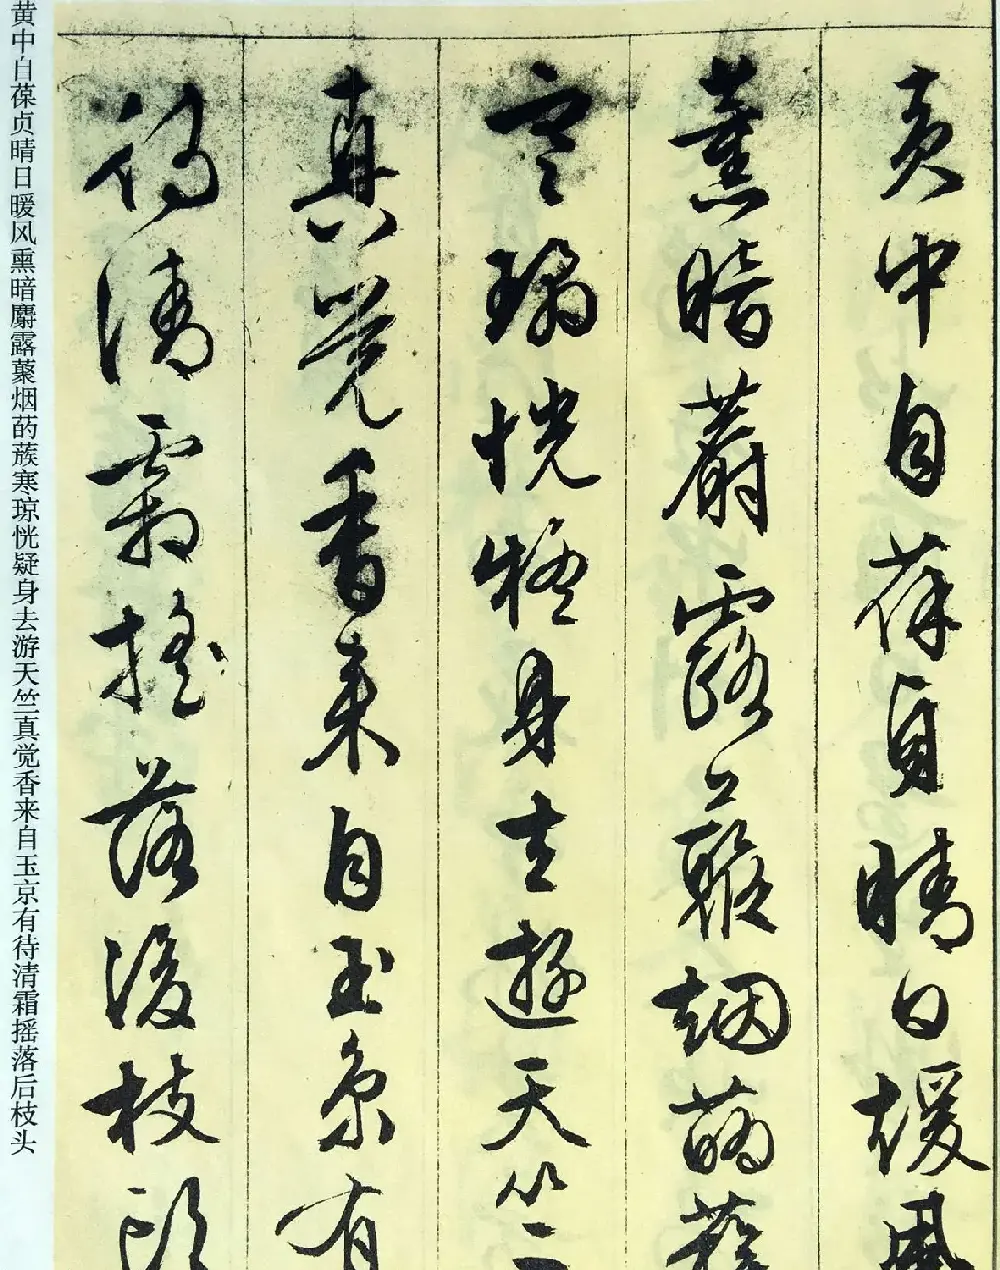 黄中自葆贞晴日暖风熏暗麝露蘂烟药蔟寒琼恍疑身去游天竺真觉香来自玉京有待清霜摇落后枝头
黄中自葆貞晴日煖風
薰暗麝露蘂烟葯蔟
寒瓊恍疑身去遊天竺
真覺香来自玉京有
待清霜摇落後枝頭